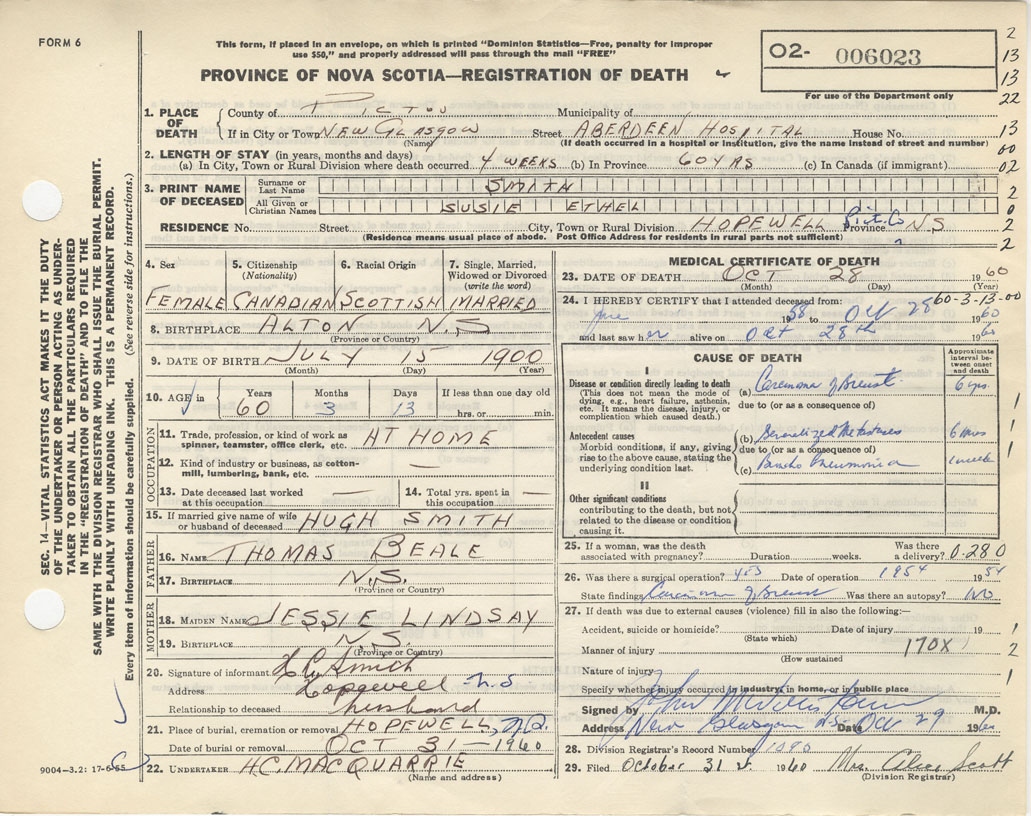 FORM 6
This form, if placed in an envelope, on which is printed "Dominion Statistics—Free, penalty for improper
use $50," and properly addressed will pass through the mail "FREE"
PROVINCE OF NOVA SCOTIA—REGISTRATION OF DEATH
02- 006023
For use of the Department only
2
13
13
22
13
00
02
2
0
2
2
SEC. 14—VITAL STATISTICS ACT MAKES IT THE DUTY
OF THE UNDERTAKER OR PERSON ACTING AS UNDER-
TAKER TO OBTAIN ALL THE PARTICULARS REQUIRED
IN THE "REGISTRATION OF DEATH" AND TO FILE THE
SAME WITH THE DIVISION REGISTRAR WHO SHALL ISSUE THE BURIAL PERMIT.
WRITE PLAINLY WITH UNFADING INK. THIS IS A PERMANENT RECORD.
Every item of information should be carefully supplied. (See reverse side for instructions.)
1. PLACE OF DEATH
County of PICTOU Municipality of
If in City or Town NEW GLASGOW Street ABERDEEN HOSPITAL House No.
(Name) (If death occurred in a hospital or institution, give the name instead of street and number)
2. LENGTH OF STAY (in years, months and days)
(a) In City, Town or Rural Division where death occurred 4 WEEKS (b) In Province 60 YRS (c) In Canada (if immigrant)
3. PRINT NAME OF DECEASED
Surname or Last Name SMITH
All Given or Christian Names SUSIE ETHEL
RESIDENCE No. Street City, Town or Rural Division HOPEWELL Pict. Co Province N.S
(Residence means usual place of abode. Post Office Address for residents in rural parts not sufficient)
4. Sex 5. Citizenship (Nationality) 6. Racial Origin 7. Single, Married, Widowed or Divorced (write the word)
FEMALE CANADIAN SCOTTISH MARRIED
8. BIRTHPLACE ALTON N.S
(Province or Country)
9. DATE OF BIRTH JULY 15 1900
(Month) (Day) (Year)
10. AGE Years Months Days If less than one day old
60 3 13 hrs. or min.
OCCUPATION
11. Trade, profession, or kind of work as spinner, teamster, office clerk, etc. AT HOME
12. Kind of industry or business, as cotton-mill, lumbering, bank, etc. —
13. Date deceased last worked at this occupation —
14. Total yrs. spent in this occupation —
15. If married give name of wife or husband of deceased HUGH SMITH
FATHER
16. NAME THOMAS BEALE
17. BIRTHPLACE N.S.
(Province or Country)
MOTHER
18. MAIDEN NAME JESSIE LINDSAY
19. BIRTHPLACE N.S
(Province or Country)
20. Signature of informant H C Smith
Address Hopewell N.S
Relationship to deceased husband
21. Place of burial, cremation or removal HOPEWELL, N.S.
Date of burial or removal OCT 31—1960
22. UNDERTAKER H.C. MACQUARRIE
(Name and address)
9004-3.2: 17-6-55
MEDICAL CERTIFICATE OF DEATH
23. DATE OF DEATH OCT 28 1960
(Month) (Day) (Year)
60-3-13-00
24. I HEREBY CERTIFY that I attended deceased from:
1958 to Oct 28 1960
and last saw her alive on Oct 28th 1960
CAUSE OF DEATH
Approximate interval between onset and death
I
Disease or condition directly leading to death
(This does not mean the mode of dying, e.g., heart failure, asthenia, etc. It means the disease, injury, or complication which caused death.)
(a) Carcinoma of Breast 6 yrs.
due to (or as a consequence of)
Antecedent causes
Morbid conditions, if any, giving rise to the above cause, stating the underlying condition last.
(b) Generalized Metastases 6 mos
due to (or as a consequence of)
(c) Broncho Pneumonia 1 week
II
Other significant conditions
contributing to the death, but not related to the disease or condition causing it.
25. If a woman, was the death associated with pregnancy? Duration weeks. Was there a delivery? 0.280
26. Was there a surgical operation? yes Date of operation 1954 1954
State findings Carcinoma of Breast Was there an autopsy? No
27. If death was due to external causes (violence) fill in also the following:—
Accident, suicide or homicide? Date of injury 19
(State which)
Manner of injury 170X
(How sustained
Nature of injury
Specify whether injury occurred in industry, in home, or in public place
Signed by John M.D.
Address New Glasgow N.S. Date Oct 29 1960
28. Division Registrar's Record Number
29. Filed October 31st. 1960 Mrs. Alice Scott
(Division Registrar)
1
1
1
1
2
1